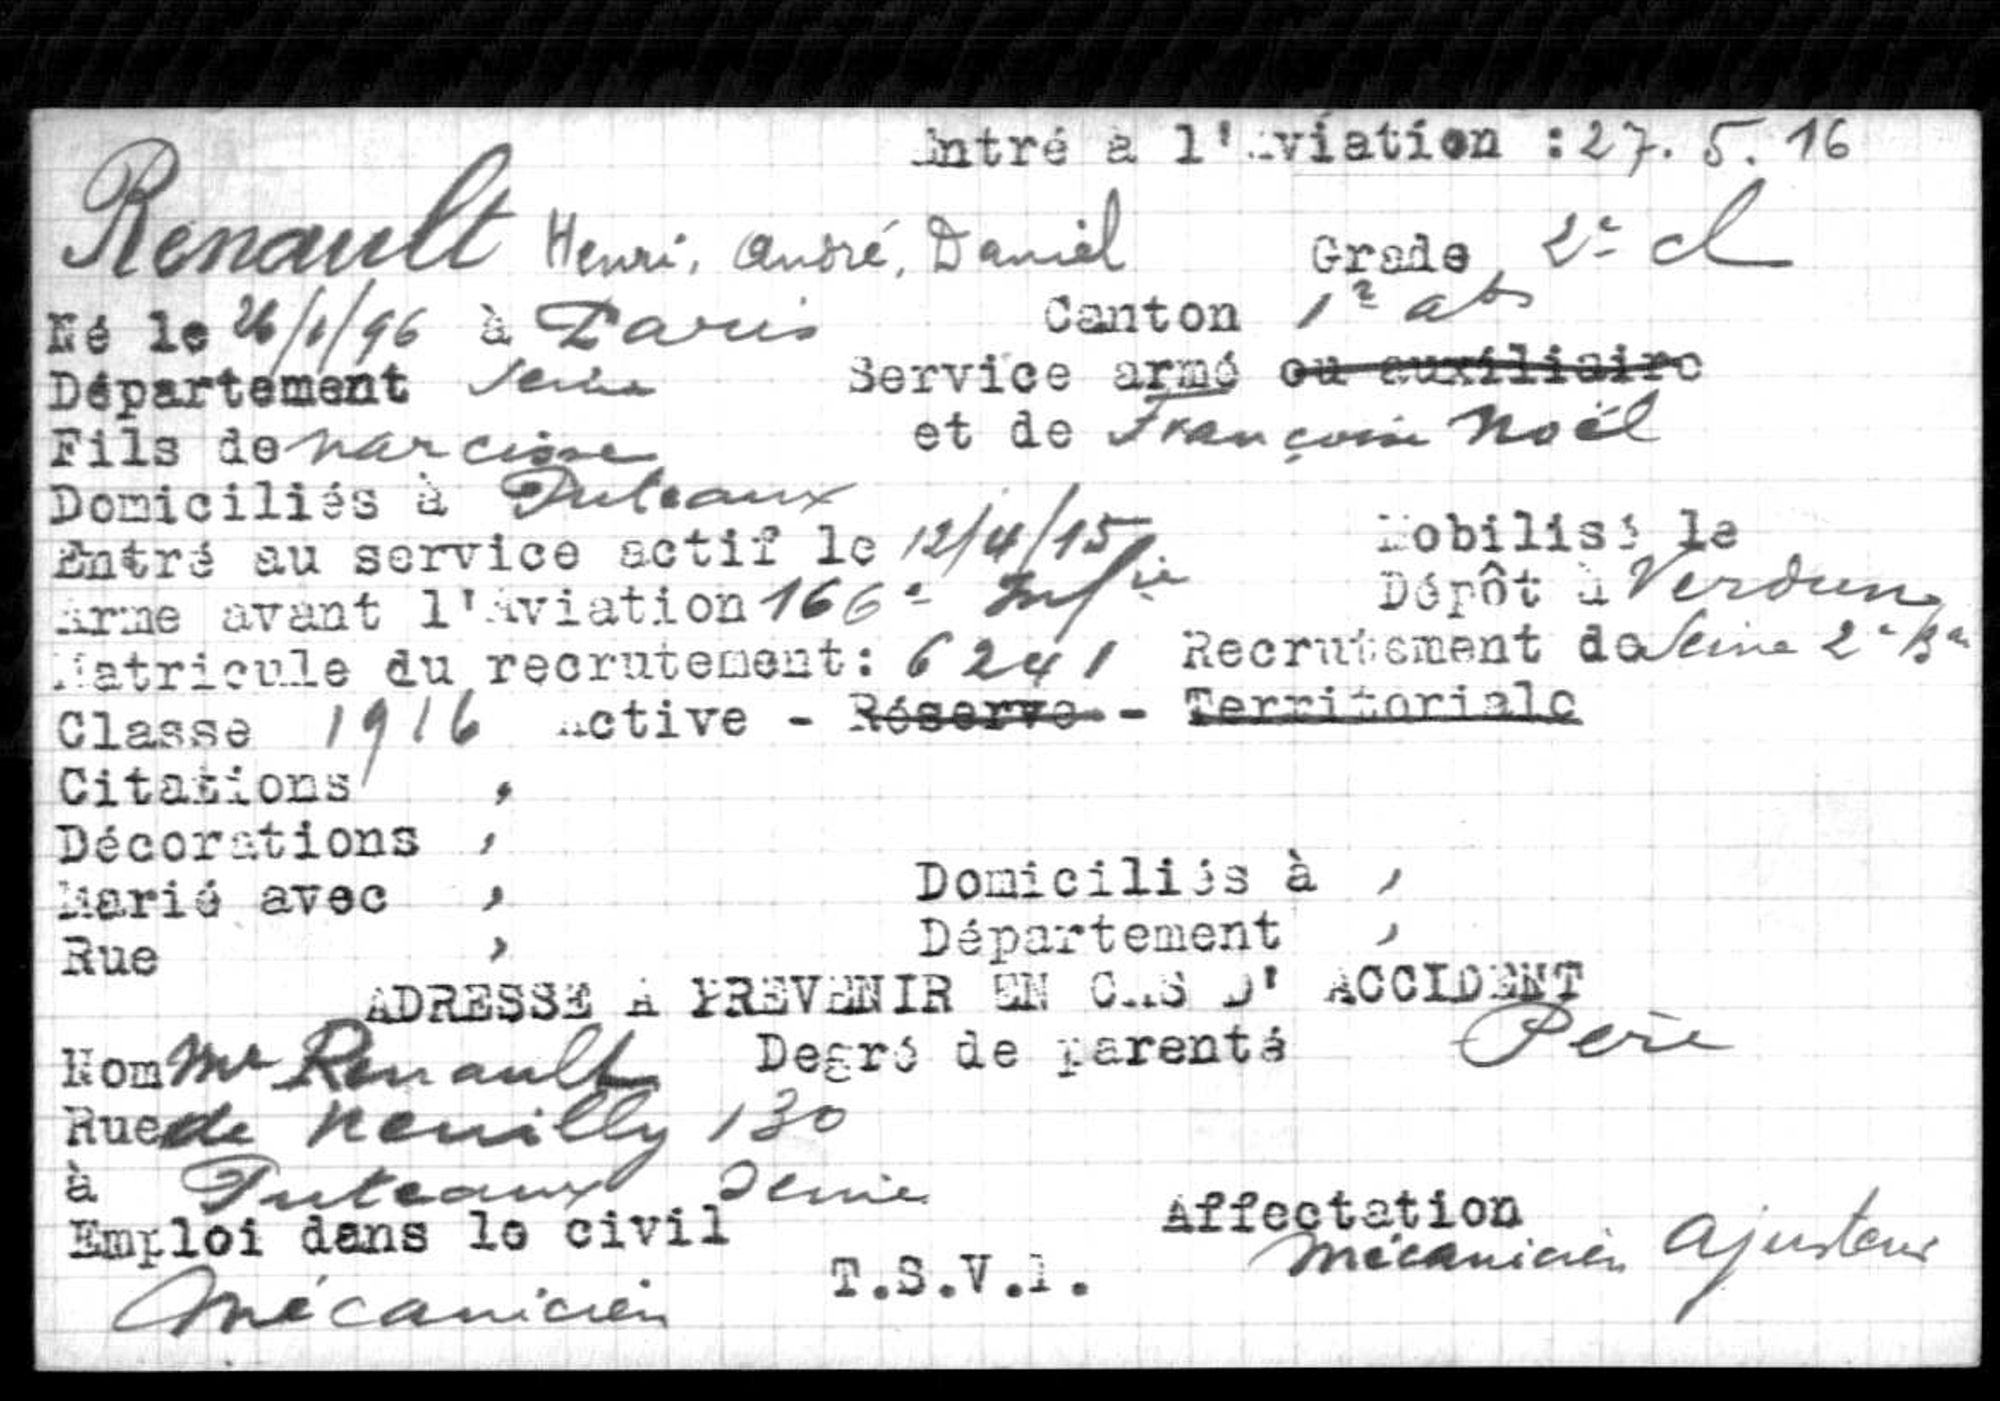 Entré à l'Aviation : 27. 5. 16
Renault Henri, André, Daniel Grade 2e cl
Né le 26/1/96 à Paris Canton 1r abs
Département Seine Service armé ou auxiliaire
Fils de narcisse et de Françoise Noël
Domiciliés à Puteaux
Entré au service actif le 12/4/15 Mobilisé le
Arme avant l'Aviation 166e Infie Dépôt à Verdun
Matricule du recrutement: 6241 Recrutement de Seine 2e Bau
Classe 1916 Active - Réserve - Territoriale
Citations ,
Décorations ,
Marié avec , Domiciliés à ,
Rue , Département ,
ADRESSE A PREVENIR EN CAS D' ACCIDENT
Nom Mr Renault Degré de parenté Père
Rue de Neuilly 130
à Puteaux Seine
Emploi dans le civil Affectation
Mécanicien T.S.V.P. Mécanicien ajusteur